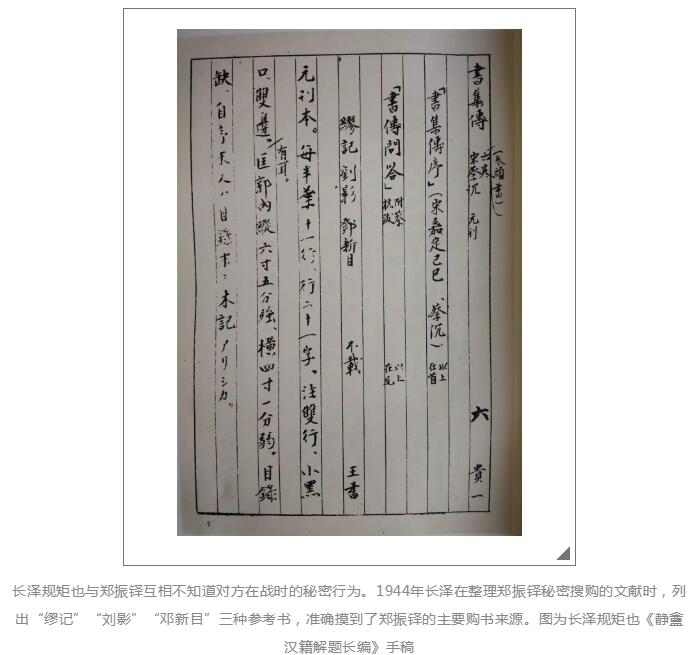 書集傳 六卷 宋蔡沉 元刊 六 貴一
「書集傳序」(宋嘉定己巳、蔡沉) 以上在首
「書傳問答」附蔡抗跋 以上在尾
繆記 劉影 鄧新目 不載 王書
元刊本。每半葉十一行、行二十一字。注雙行、小黑
口、雙邊。有耳。匡郭內縱六寸五分強、橫四寸一分弱。目錄
缺、自序末又ハ目錄末ニ木記アリシカ。
7
长泽规矩也与郑振铎互相不知道对方在战时的秘密行为。1944年长泽在整理郑振铎秘密搜购的文献时，列
出“缪记”“刘影”“邓新目”三种参考书，准确摸到了郑振铎的主要购书来源。图为长泽规矩也《静盦
汉籍解题长编》手稿